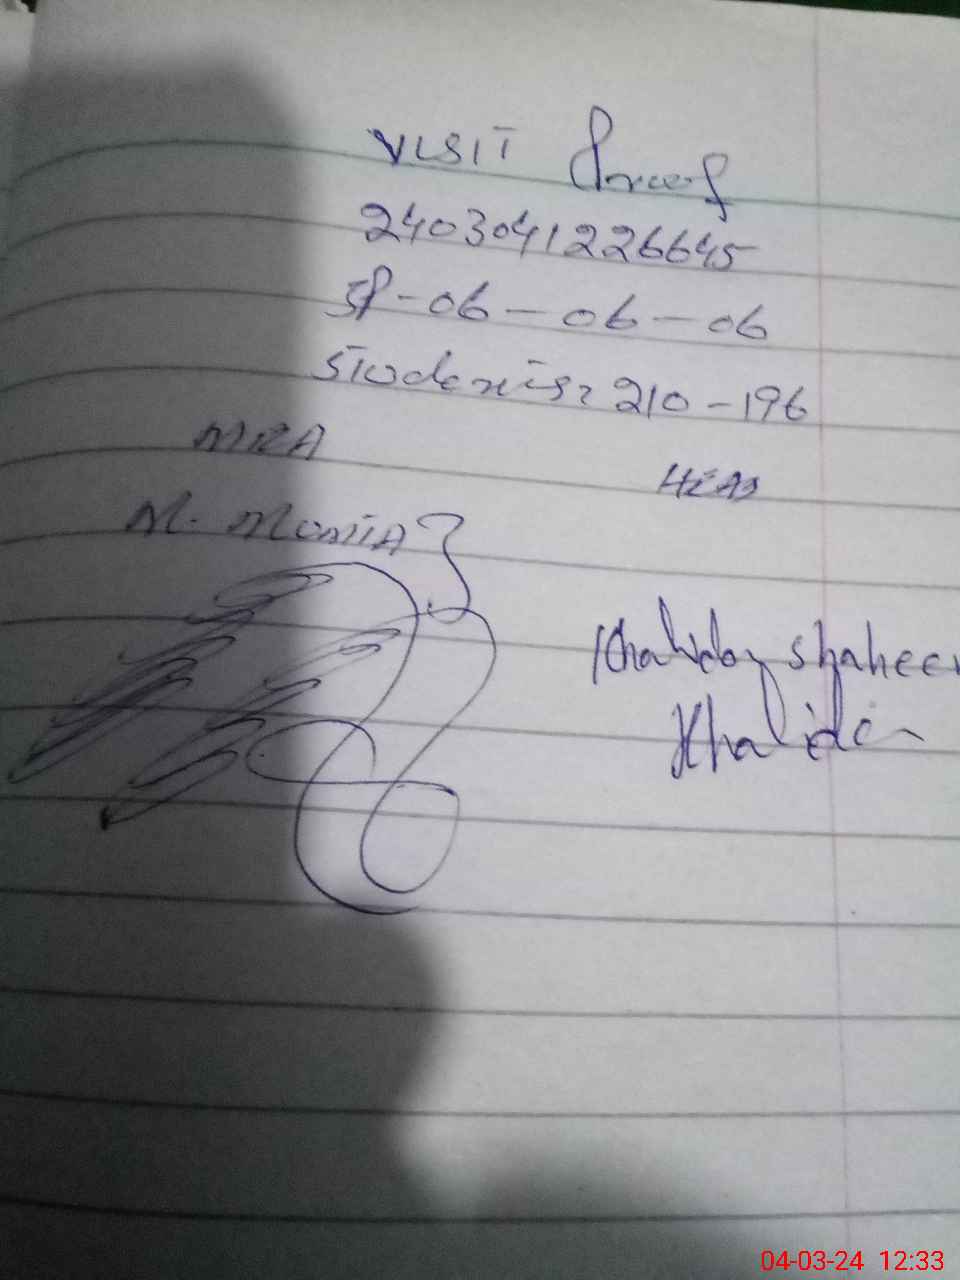 VISIT Proof
2403041226645
SP-06-06-06
Students: 210-196
MEA
HEAD
M. MONTA
Khalida shaheen
Khalida
04-03-24 12:33